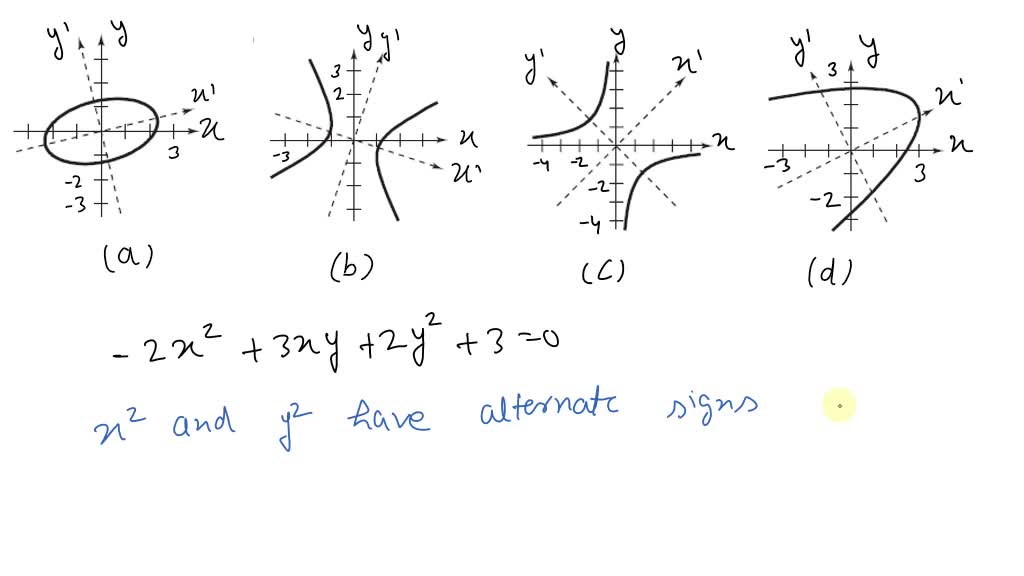 y' y x' x 3 -2 -3
(a)
y y' 3 2 -3 x x'
(b)
y y' x' x -4 -2 -2 -4
(c)
y' y 3 x' x -3 3 -2
(d)
-2x² + 3xy + 2y² + 3 = 0
x² and y² have alternate signs